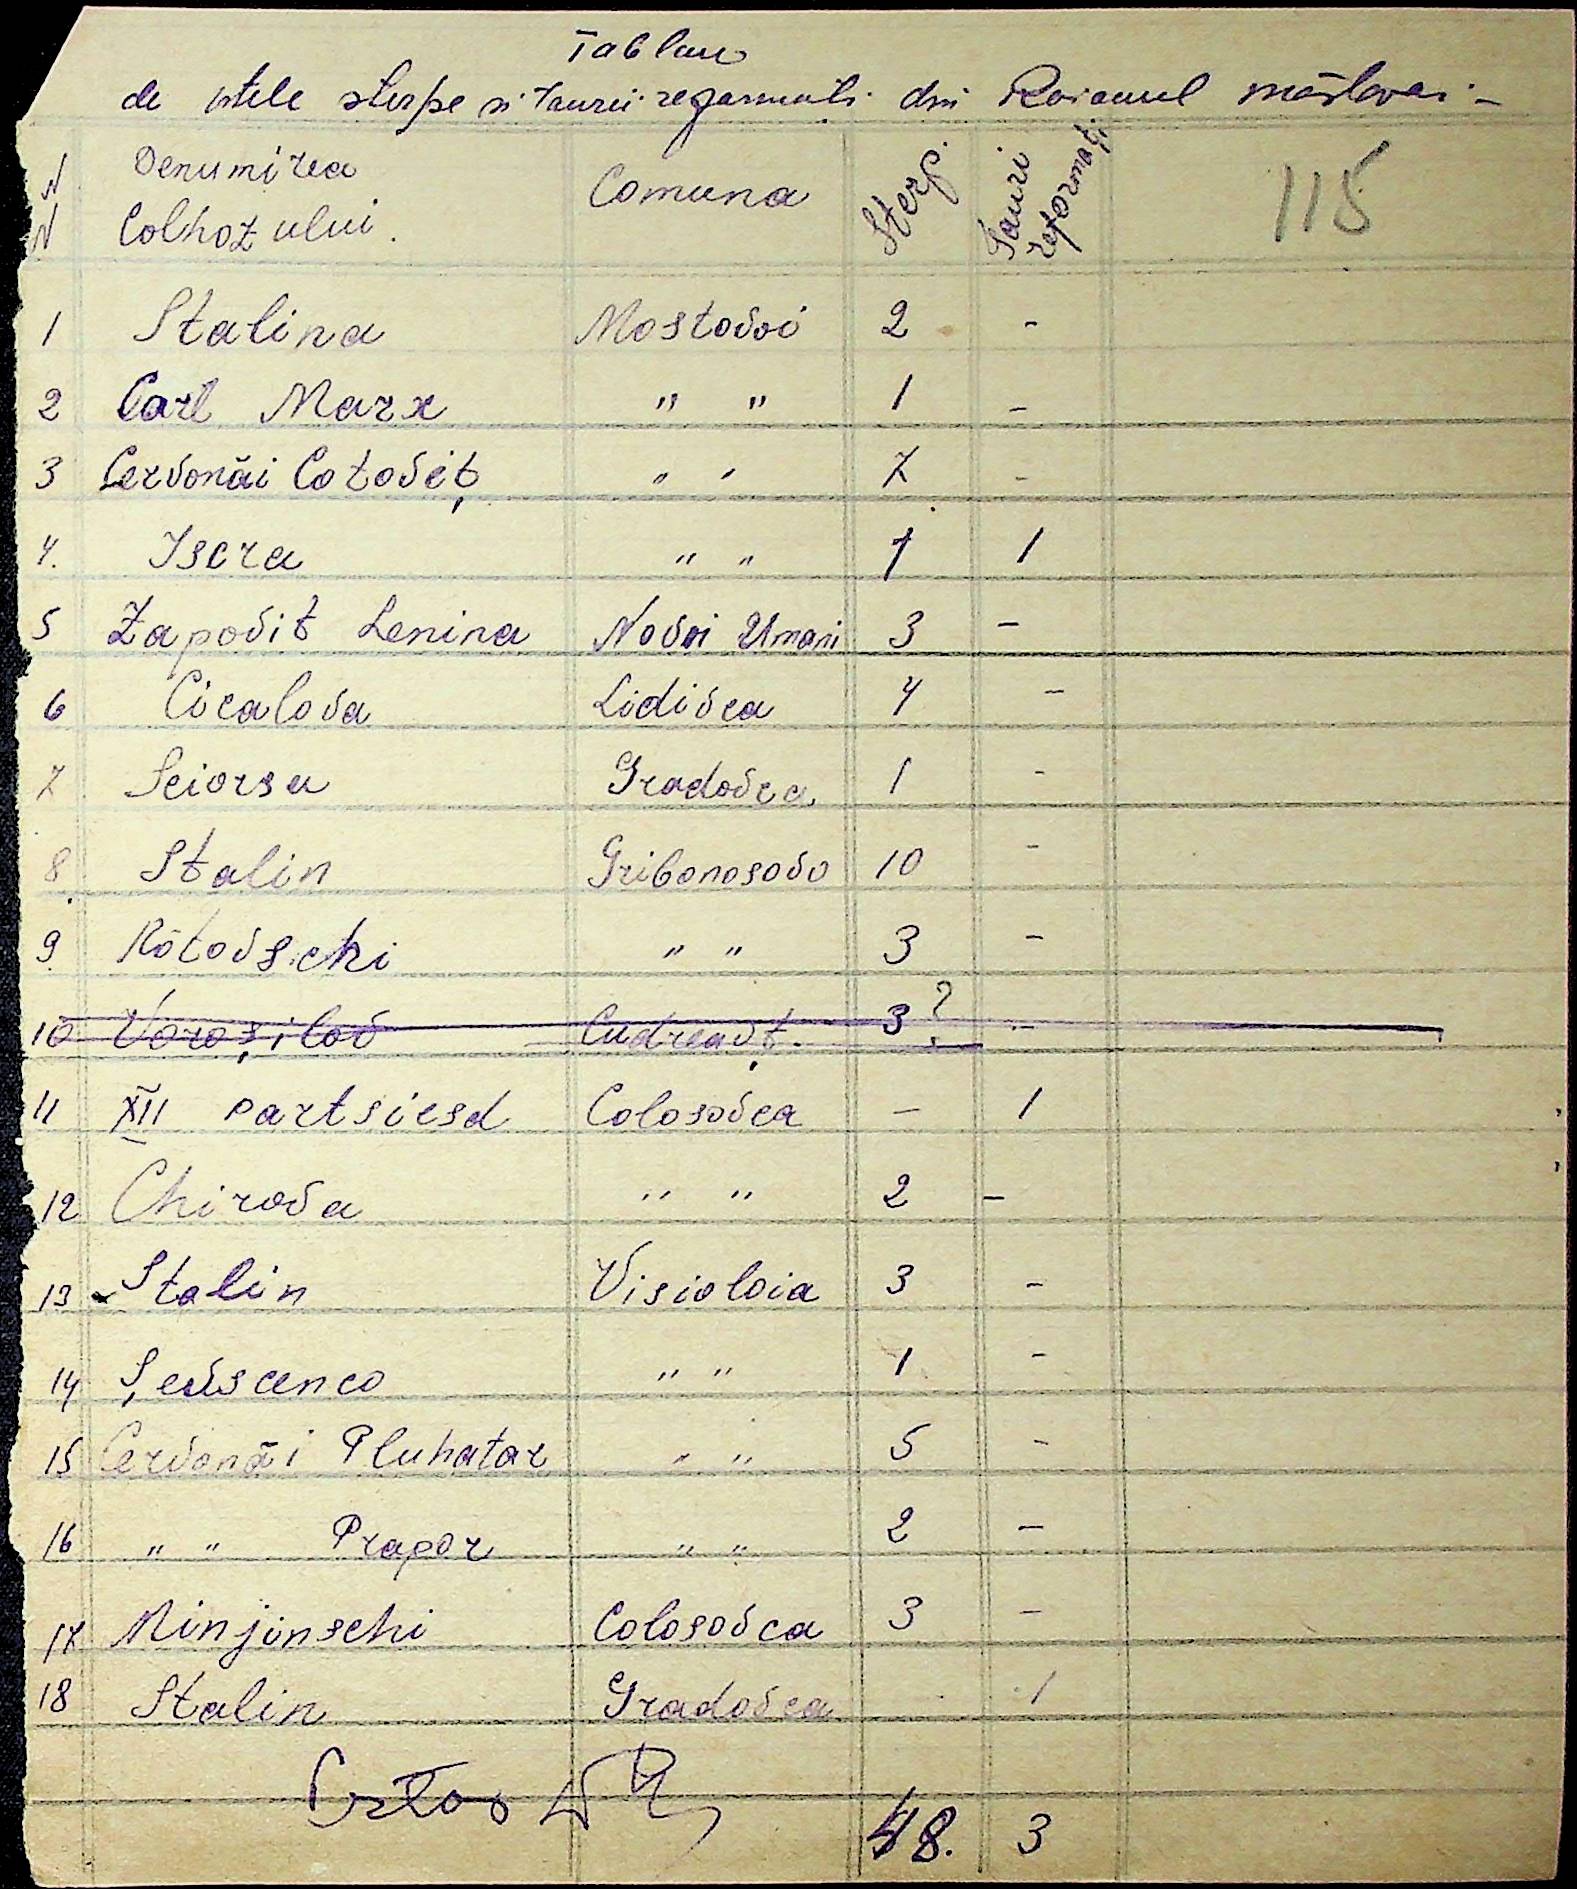 Tablau
de vitele sterpe si taurii reformati din Raionul
N Denumirea
N Colhozului. Comuna Sterp. Tauri reformați 115
1 Stalina Mostovoi 2 -
2 Carl Marx " " 1 -
3 Cervonăi Cotoveț " " 7 -
4. Iscra " " 1 1
5 Zapovit Lenina Novoi Umani 3 -
6 Cicalova Lidivca 4 -
7 Sciorsa Gradovca 1 -
8 Stalin Gribonosovo 10 -
9 Kotovschi " " 3 -
10 Voroșilov Cudreavț. 3 ? -
11 XII partsiesd Colosovca - 1
12 Chirova " " 2 -
13 Stalin Visioloia 3 -
14 Șevscenco " " 1 -
15 Cervonăi Pluhatar " " 5 -
16 " " Prapor " " 2 -
17 Minjinschi Colosovca 3 -
18 Stalin Gradovca 1
48. 3